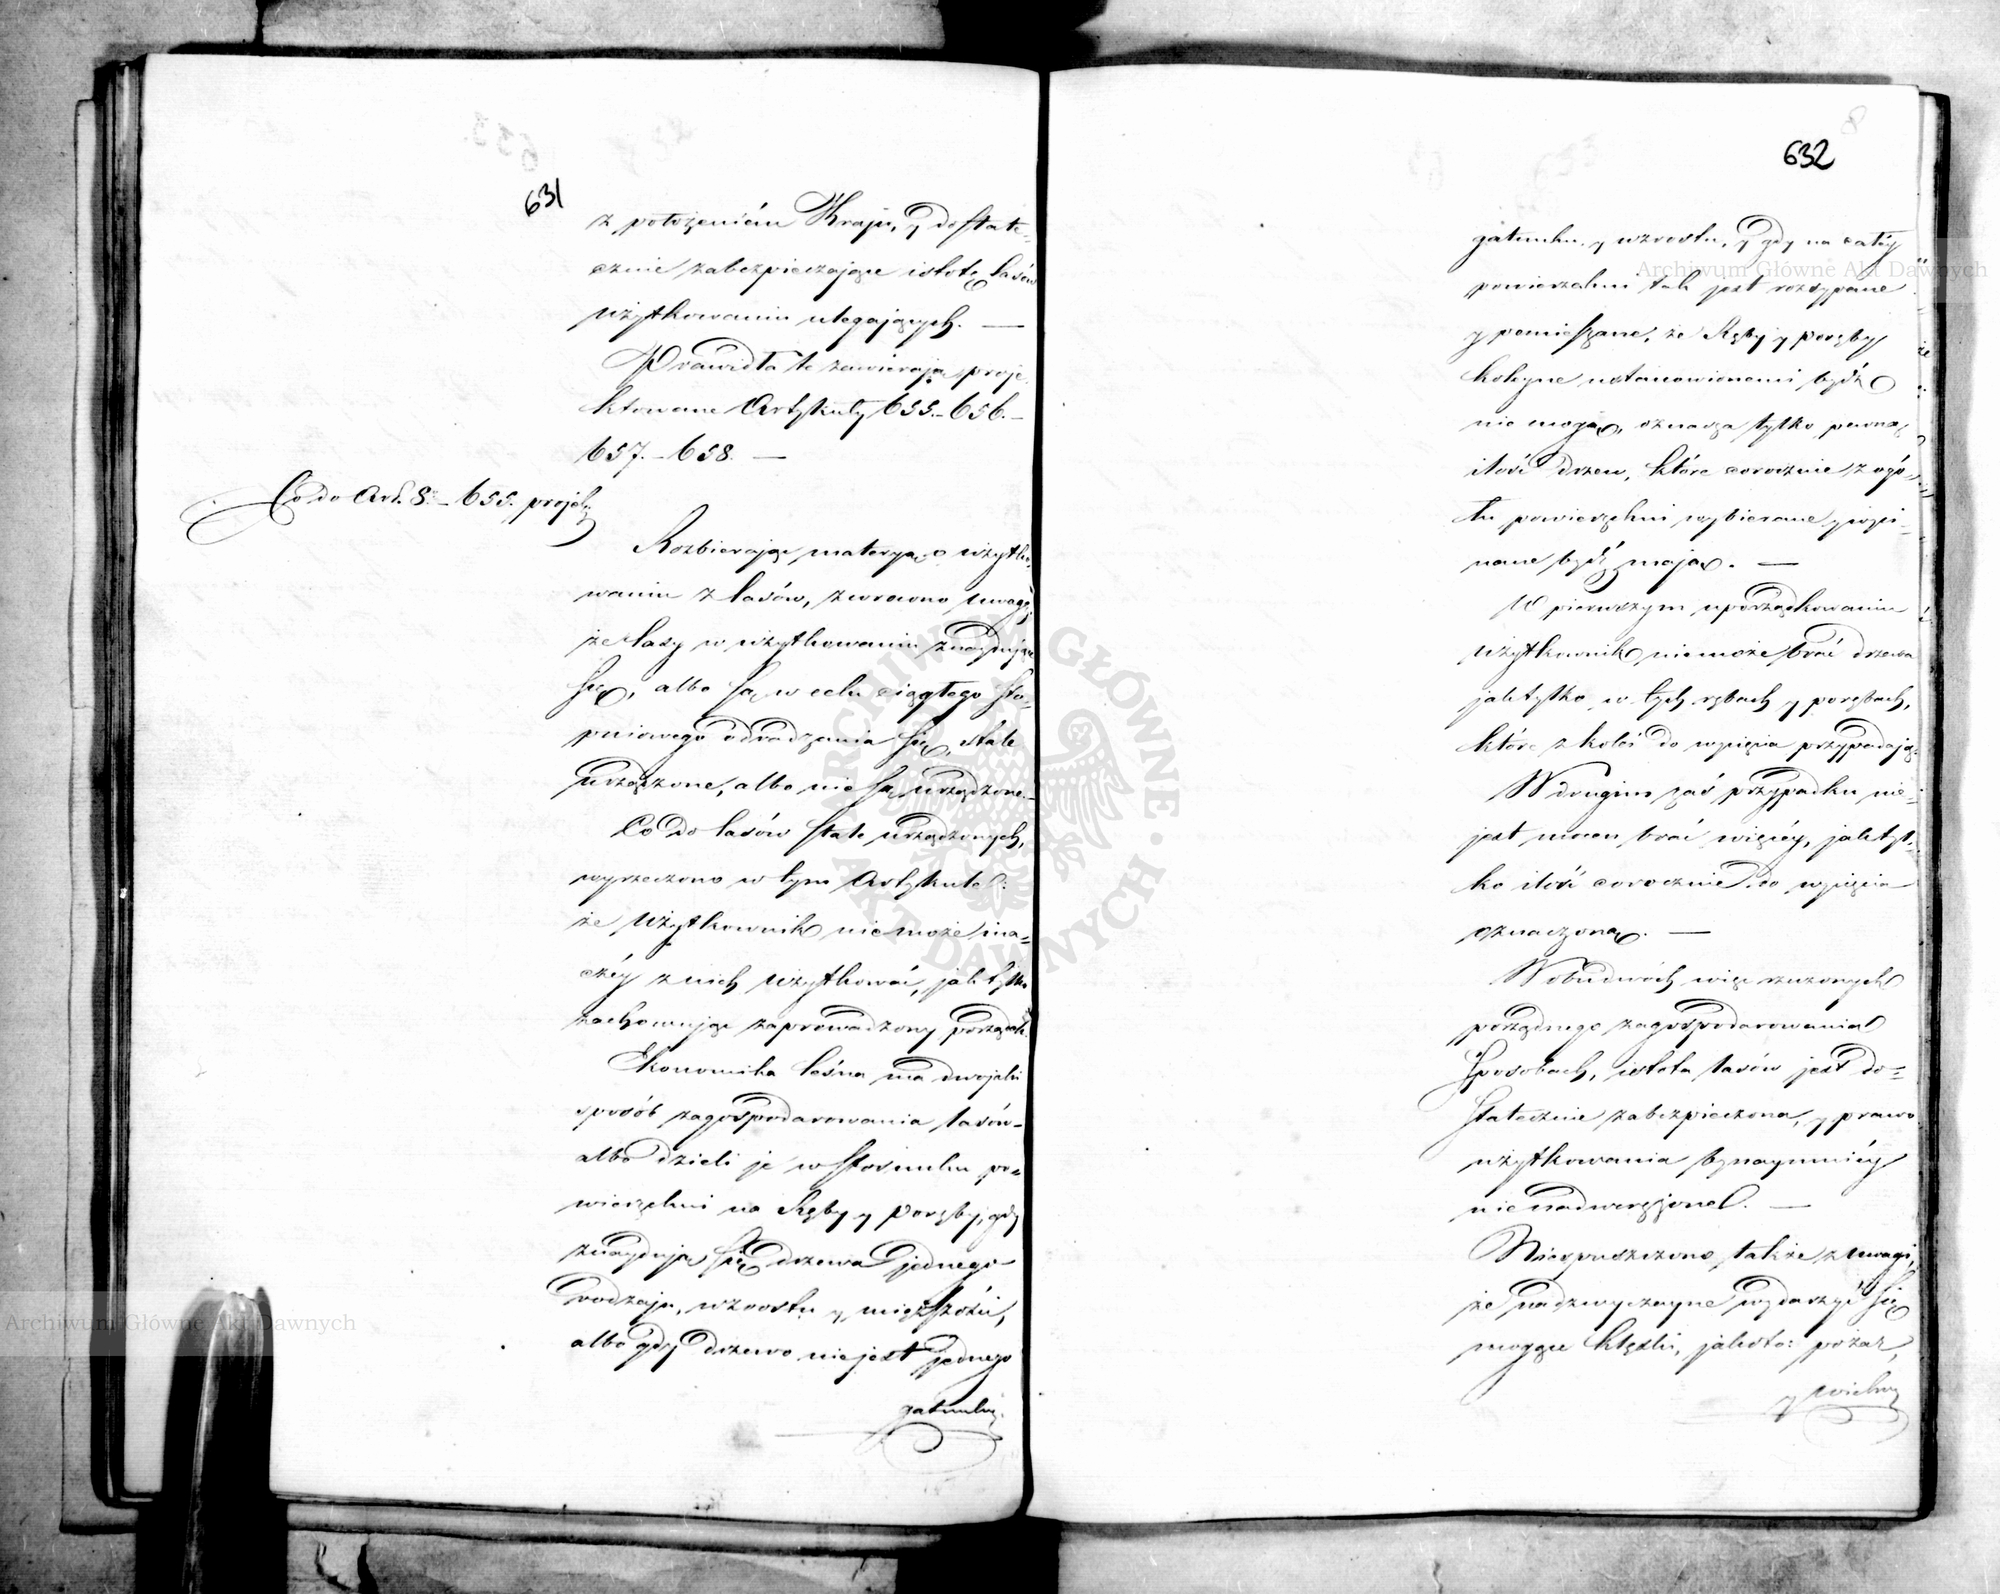 631
z położeniém Kraju, y dostate-
cznie zabezpieczające istotę lasów
użytkowaniu ulegających. —
Prawidła te zawieraią proje-
ktowane Artykuły 655.–656.–
657.–658. —
Co do Art. 8. – 655. projek:
Rozbierając materyą o użytko-
waniu z lasów, zwrócono uwagę,
że lasy w użytkowaniu znaydujące
się, albo są w celu ciągłego sto-
pniowego odradzania się, stale
urządzone, albo nie są urządzone.
Co do lasów stale urządzonych,
wyrzeczono w tym Artykule:
że Użytkownik nie może ina-
czéy z nich użytkować, jak tylko
zachowując zaprowadzony porządek.
Ekonomika leśna ma dwojaki
sposób zagospodarowania lasów –
albo dzieli je w stosunku po-
wierzchni na Ręby y Poręby, gdy
znayduią się drzewa jednego
rodzaju, wzrostu y miąższości,
albo gdy drzewo nie jest jednego
gatunku
632
8
gatunku y wzrostu, y gdy na całéy
powierzchni tak jest rozsypane
y pomieszane, że Ręby y poręby
koleyne ustanowionemi bydź
nie mogą, oznacza tylko pewną
ilość drzew, które corocznie z ogó-
łu powierzchni wybierane y wyci-
nane bydź mają. —
W pierwszym uporządkowaniu
użytkownik nie może brać drzewa
jak tylko w tych rębach y porębach,
które z kolei do wycięcia przypadają.
W drugim zaś przypadku nie
jest mocen brać więcéy, jak tyl-
ko ilość corocznie do wycięcia
oznaczoną. —
W obudwóch więc rzeczonych
porządnego zagospodarowania
sposobach, istota lasów jest do-
statecznie zabezpieczona, y prawo
użytkowania bynaymniéy
nie nadwerężone. —
Niespuszczono także z uwagi,
że nadzwyczayne wydarzyć się
mogące klęski, jakoto: pożar,
y wichry
Archiwum Główne Akt Dawnych
Archiwum Główne Akt Dawnych
ARCHIWUM GŁÓWNE · AKT DAWNYCH ·